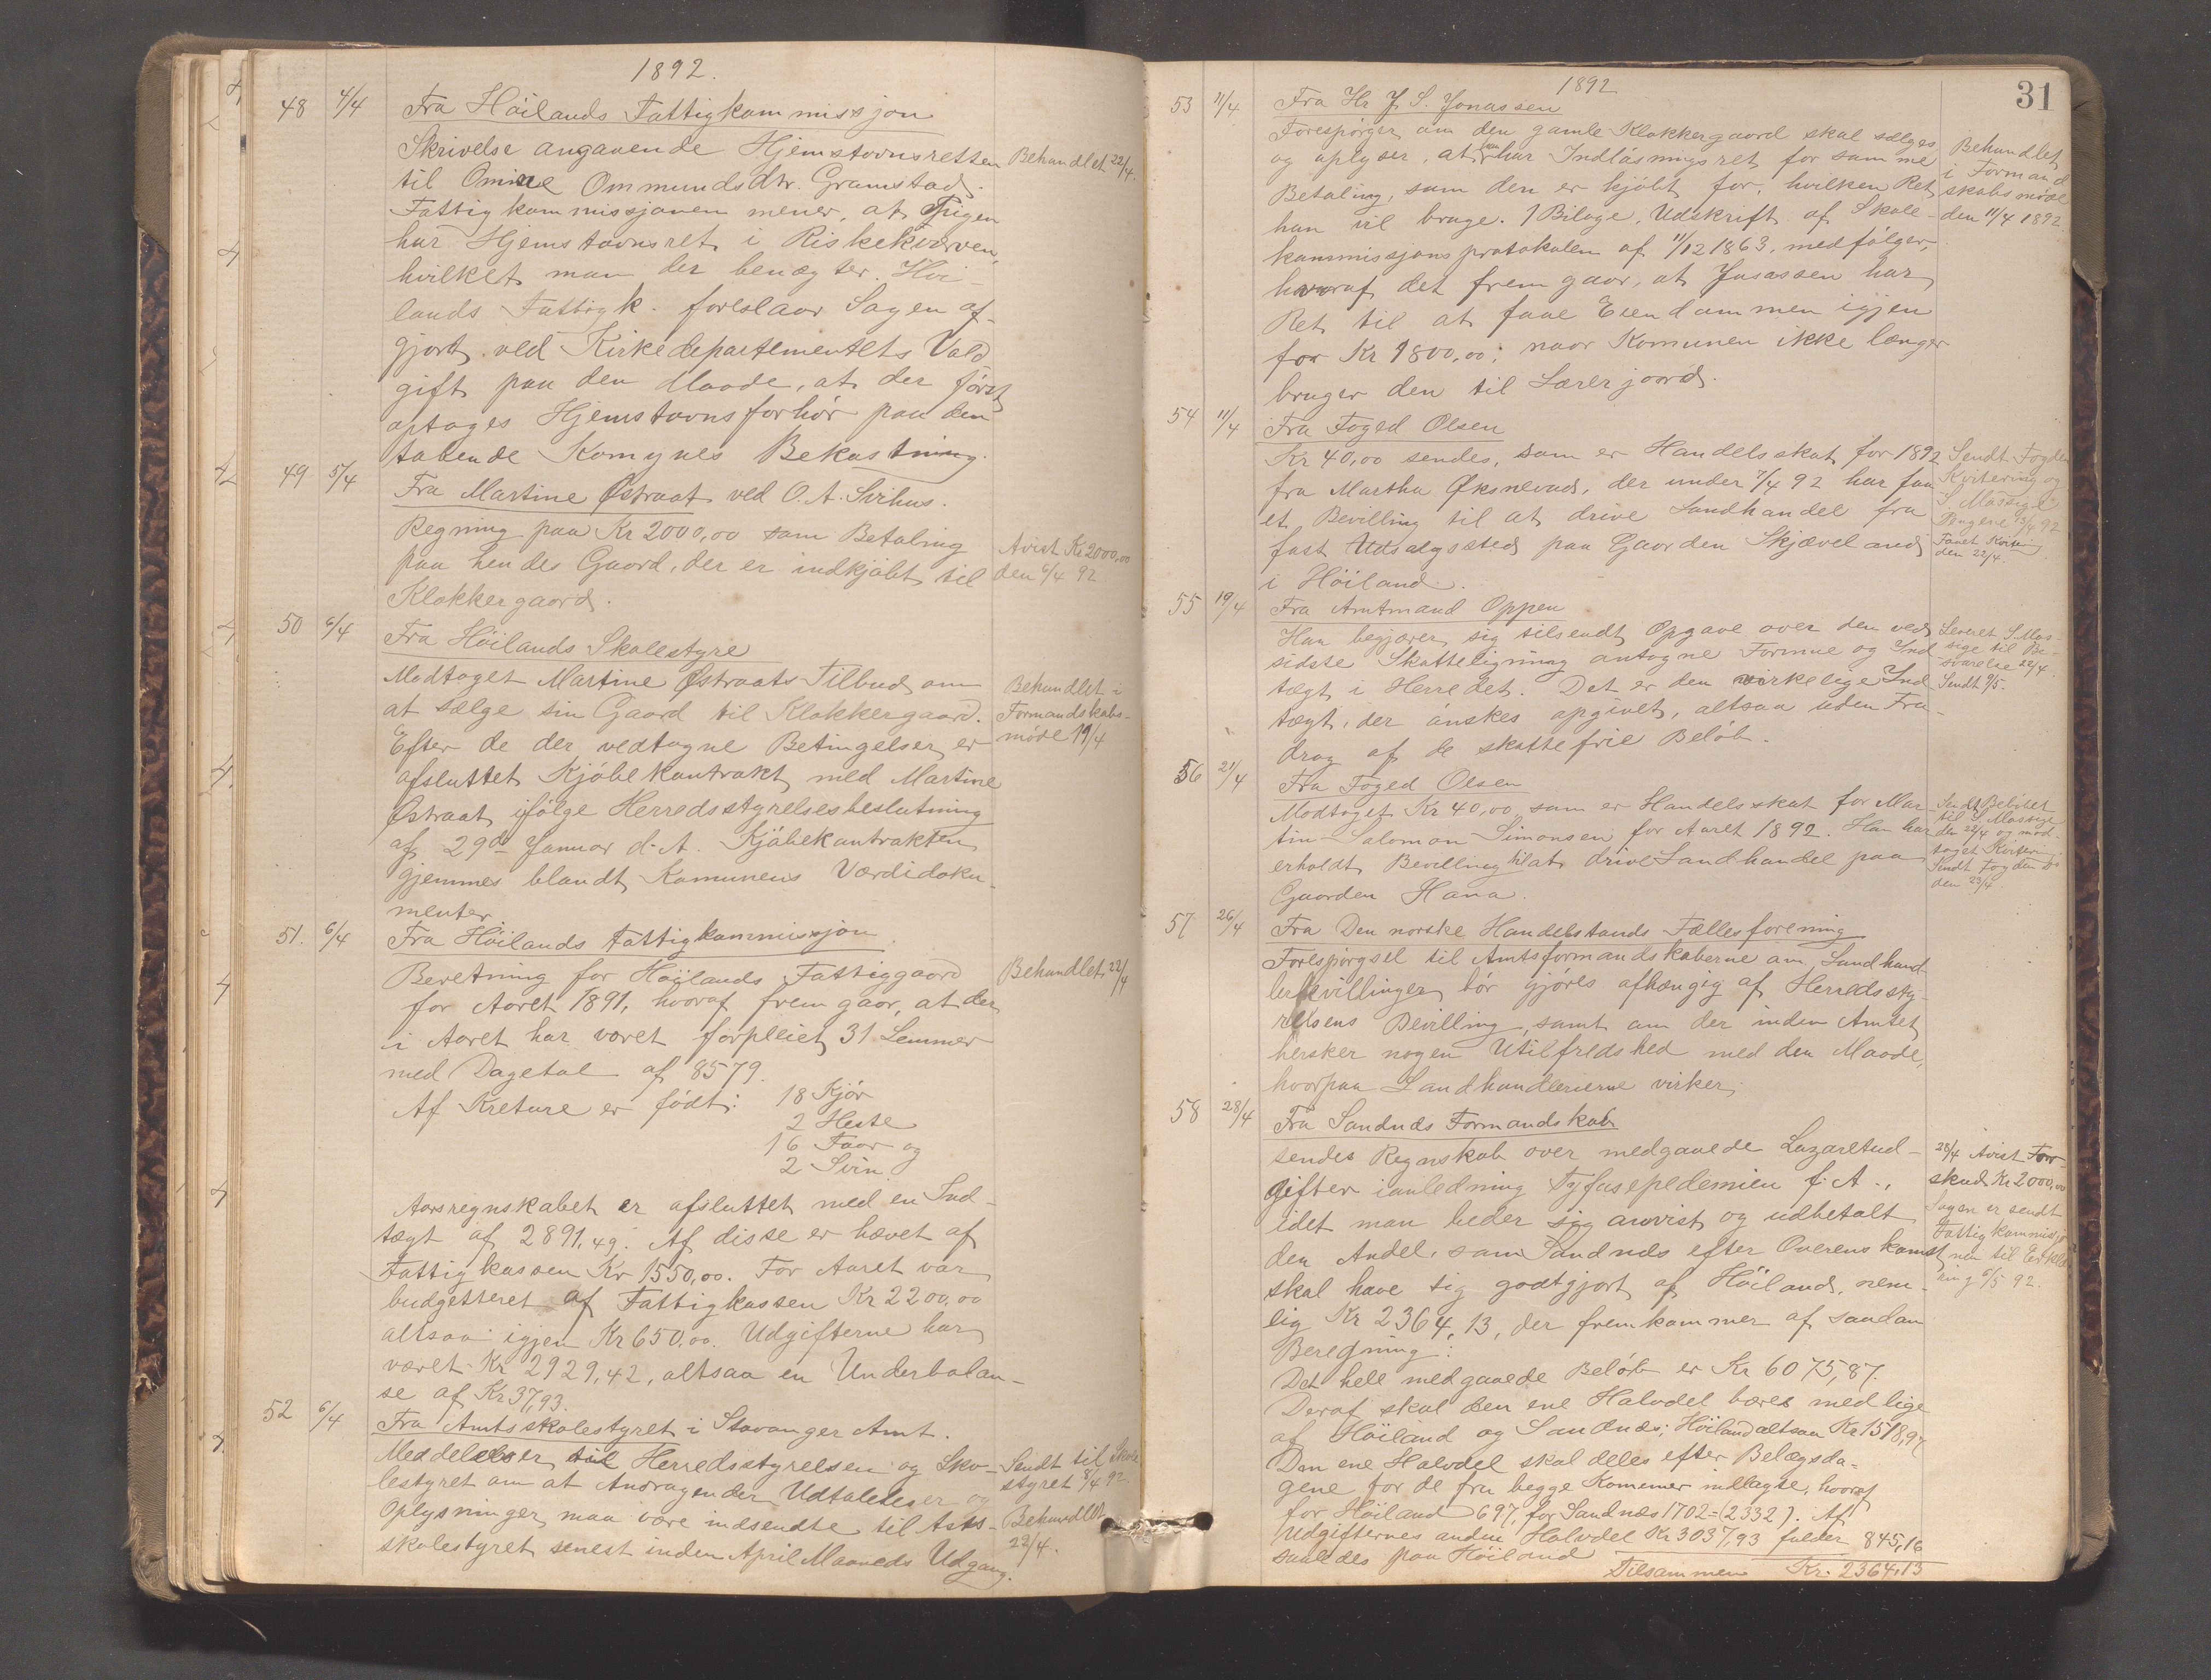 1892.
48 4/4 Fra Höilands Fattigkommissjon
Skrivelse angaaende Hjemstavnsretten Behandlet 22/4.
til Omine Ommundsdtr. Gramstad.
Fattigkommissjonen mener, at Pigen
har Hjemstavnsret i Riskekværven,
hvilket man der benægter. Höi-
lands Fattigk. foreslaar Sagen af-
gjort ved Kirkedepartementets Vold
gift paa den Maade, at der först
optages Hjemstavnsforhör paa den
tabende Komynes Bekostning.
49 5/4 Fra Martine Østraat ved O. A. Sirhus.
Regning paa Kr 2000,00 som Betaling Avist Kr 2000,00
paa hendes Gaard, der er indkjöbt til den 6/4 92
Klokkergaard.
50 6/4 Fra Höilands Skolestyre
Modtaget Martine Østraats Tilbud om Behandlet i
at sælge sin Gaard til Klokkergaard. Formandskabs-
Efter de der vedtagne Betingelser er möde 19/4
afsluttet Kjöbekontrakt med Martine
Østraat ifölge Herredsstyrelsesbeslutning
af 29de Januar d. A. Kjöbekontrakten
gjemmes blandt Komunens Værdidoku-
menter.
51. 6/4 Fra Höilands Fattigkommissjon
Beretning for Höilands Fattiggaard Behandlet 22/4
for Aaret 1891, hvoraf fremgaar, at der
i Aaret har været forpleiet 31 Lemmer
med Dagetal af 8579.
Af Kreture er födt: 18 Kjör
2 Heste
16 Faar og
2 Svin
Aarsregnskabet er afsluttet med en Ind-
tægt af 2891,49. Af disse er hævet af
Fattigkassen Kr 1550,00. For Aaret var
budgetteret af Fattigkassen Kr 2200,00
altsaa igjen Kr 650,00. Udgifterne har
været Kr 2929,42, altsaa en Underbalan-
se af Kr 37,93.
52 6/4 Fra Amtsskolestyret i Stavanger Amt.
Meddelelser til Herredsstyrelsen og Sko- Sendt til Skole
lestyret om at Andragender Udtalelser og styret 8/4 92.
Oplysninger maa være indsendte til Amts- Behandlet
skolestyret senest inden April Maaneds Udgang. 22/4.
31
1892
53 11/4 Fra Hr J. S. Jonassen
Forespörger om den gamle Klokkergaard skal sælges, Behandlet
og oplyser, at han har Indlösningsret for samme i Formand
Betaling, som den er kjöbt for, hvilken Ret skabsmöde
han vil bruge. 1 Bilage, Udskrift af Skole- den 11/4 1892
kommissjonsprotokolen af 11/12 1863, medfölger,
hvoraf det fremgaar, at Jonassen har
Ret til at faae Eiendommen igjen
for Kr 1800,00; naar Komunen ikke længer
bruger den til Lærerjoord.
54 11/4 Fra Foged Olsen
Kr 40,00 sendes, som er Handelsskat for 1892 Sendt Fogden
fra Martha Øksnevad, der under 7/4 92 har faaet Kvitering og
et Bevilling til at drive Landhandel fra S Massige
fast Udsalgssted paa Gaarden Skjæveland Pengene 13/4 92
i Höiland. Faaet Kvitering den 22/4.
55 19/4 Fra Amtmand Oppen
Han begjærer sig tilsendt Opgave over den ved Leveret S. Mas-
sidste Skatteligning antagne Formue og Ind- sige til Be-
tægt i Herredet. Det er den virkelige Ind- svarelse 22/4.
tægt, der önskes opgivet, altsaa uden Fra- Sendt 9/5.
drag af de skattefrie Belöb.
56 21/4 Fra Foged Olsen
Modtaget Kr 40,00 som er Handelsskat for Mar- Sendt Belöbet
tin Salomon Simonsen for Aaret 1892. Han har til S. Massige
erholdt Bevilling til at drive Landhandel paa den 22/4 og mod-
Gaarden Hana. taget Kvitering. Sendt Fogden den 23/4.
57 26/4 Fra Den norske Handelstands Fællesforening
Forespörgsel til Amtsformandskaberne om Landhand-
lerbevillinger bör gjöres afhængig af Herredssty-
relsens Bevilling, samt om der inden Amtet
hersker nogen Utilfredshed med den Maade,
hvorpaa Landhandlerierne virker.
58 28/4 Fra Sandnds Formandskab
sendes Regnskab over medgaaede Lazaretud- 28/4 Avist For-
gifter ianledning Tyfusepedemien f. A., skud Kr 2000,00
idet man beder sig anvist og udbetalt Sagen er sendt
den Andel, som Sandnds efter Overenskomst Fattigkommissjo
skal have sig godtgjort af Höiland, nem- nen til Erklæ
lig Kr 2364,13, der fremkommer af saadan ring 6/5 92.
Beregning:
Det hele medgaaede Belöb er Kr 6075,87.
Deraf skal den ene Halvdel bæres med lige
af Höiland og Sandnds; Höiland altsaa Kr 1518,97
Den ene Halvdel skal deles efter Belægsda-
gene for de fra begge Komuner indlagte, hvoraf
for Höiland 697, for Sandnæs 1702 = (2332). Af
Udgifternes anden Halvdel Kr 3037,93 falder 845,16
saaledes paa Höiland
Tilsammen Kr. 2364,13